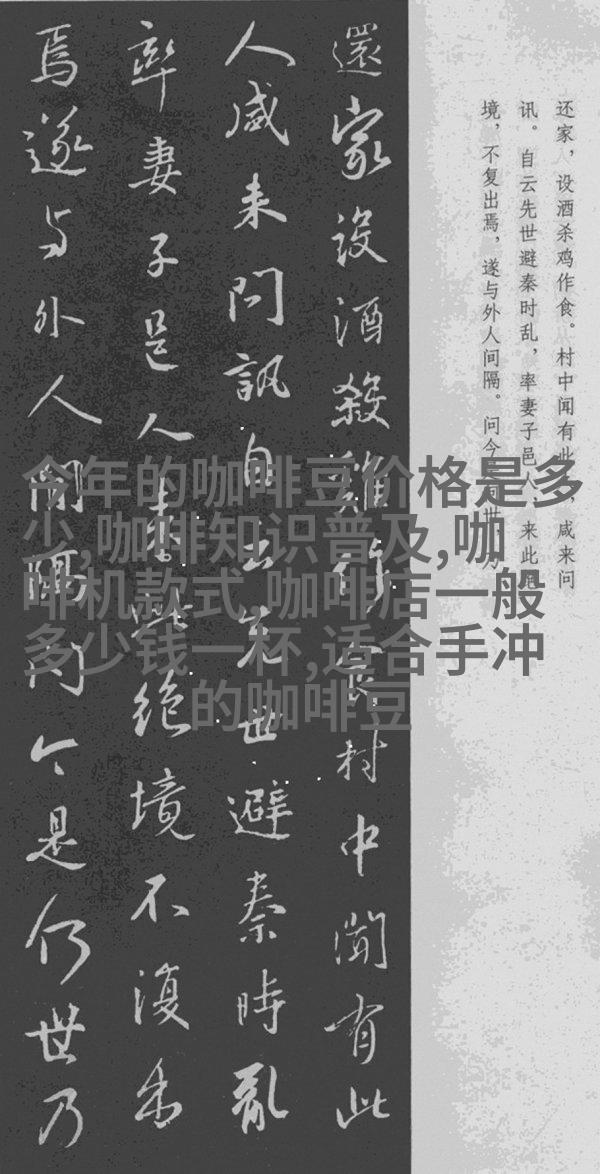 还家，设酒杀鸡作食。村中闻有此，咸来问
讯。自云先世避秦时乱，率妻子邑人，来此绝
境，不复出焉，遂与外人间隔。问今是何世，乃
還家設酒殺雞作食村中聞有此
人咸来問訊自云先世避秦時亂
率妻子邑人来此絶境不復出
焉遂与外人間隔问今是何世乃
今年的咖啡豆价格是多
少,咖啡知识普及,咖
啡机款式,咖啡店一般
多少钱一杯,适合手冲
的咖啡豆